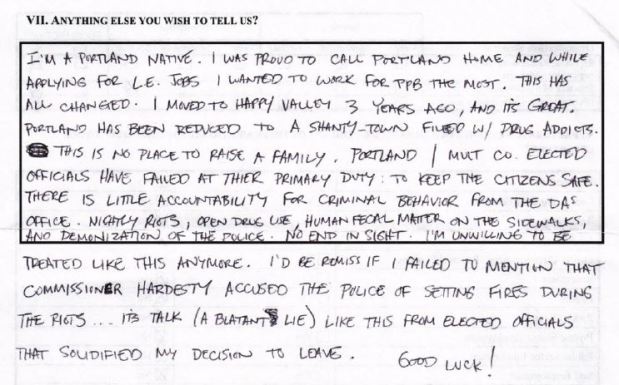 VII. ANYTHING ELSE YOU WISH TO TELL US?
I'M A PORTLAND NATIVE. I WAS PROUD TO CALL PORTLAND HOME AND WHILE
APPLYING FOR L.E. JOBS I WANTED TO WORK FOR PPB THE MOST. THIS HAS
ALL CHANGED. I MOVED TO HAPPY VALLEY 3 YEARS AGO, AND ITS GREAT.
PORTLAND HAS BEEN REDUCED TO A SHANTY-TOWN FILLED W/ DRUG ADDICTS.
THIS IS NO PLACE TO RAISE A FAMILY. PORTLAND / MULT CO. ELECTED
OFFICIALS HAVE FAILED AT THIER PRIMARY DUTY: TO KEEP THE CITIZENS SAFE.
THERE IS LITTLE ACCOUNTABILITY FOR CRIMINAL BEHAVIOR FROM THE DAS
OFFICE. NIGHTLY RIOTS, OPEN DRUG USE, HUMAN FECAL MATTER ON THE SIDEWALKS,
AND DEMONIZATION OF THE POLICE. NO END IN SIGHT. I'M UNWILLING TO BE
TREATED LIKE THIS ANYMORE. I'D BE REMISS IF I FAILED TO MENTION THAT
COMMISSIONER HARDESTY ACCUSED THE POLICE OF SETTING FIRES DURING
THE RIOTS... ITS TALK (A BLATANT LIE) LIKE THIS FROM ELECTED OFFICIALS
THAT SOLIDIFIED MY DECISION TO LEAVE. GOOD LUCK!